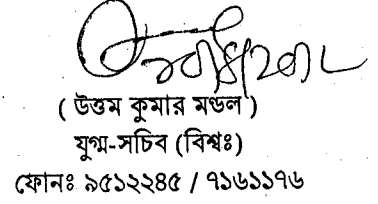 ( উত্তম কুমার মণ্ডল )
যুগ্ম-সচিব (বিশ্বঃ)
ফোনঃ ৯৫১২২৪৫ / ৭১৬১১৭৬